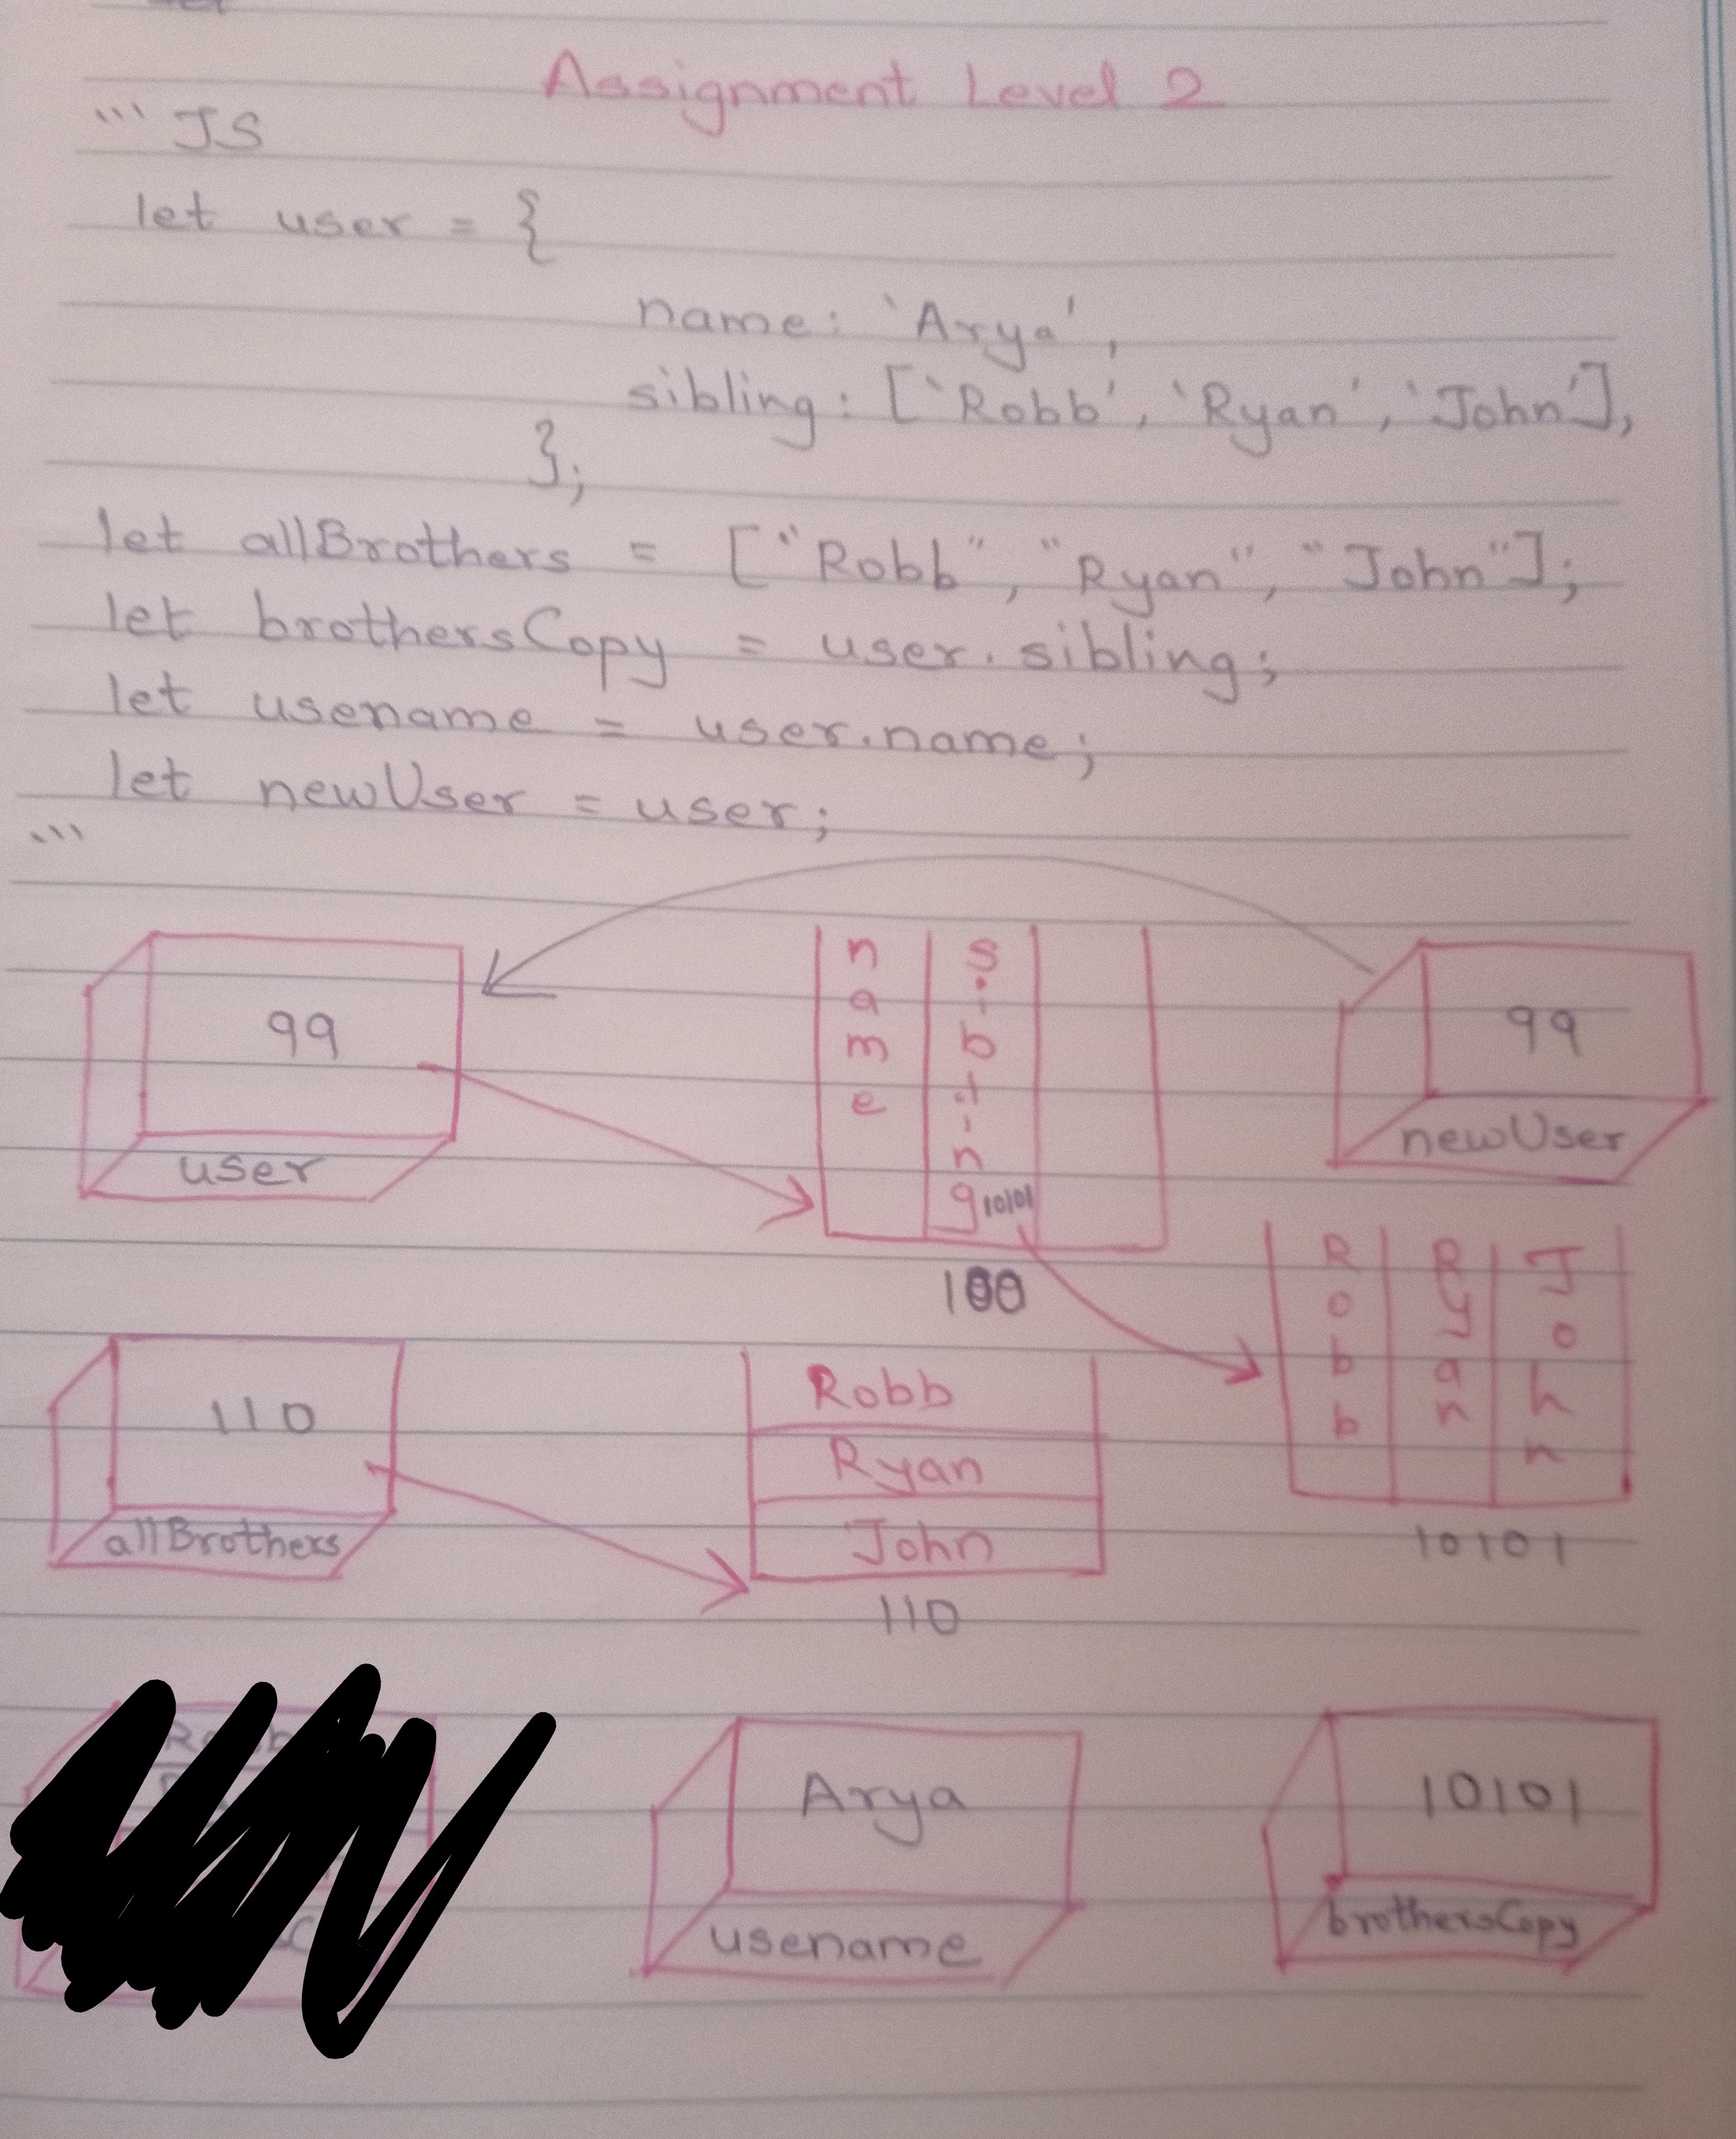 Assignment Level 2
``` JS
let user = {
name: 'Arya',
sibling: ['Robb', 'Ryan', 'John'],
};
let allBrothers = ["Robb", "Ryan", "John"];
let brothersCopy = user.sibling;
let usename = user.name;
let newUser = user;
```
99
user
name
sibling
10101
100
99
newUser
110
allBrothers
Robb
Ryan
John
110
Robb
Ryan
John
10101
Arya
usename
10101
brothersCopy